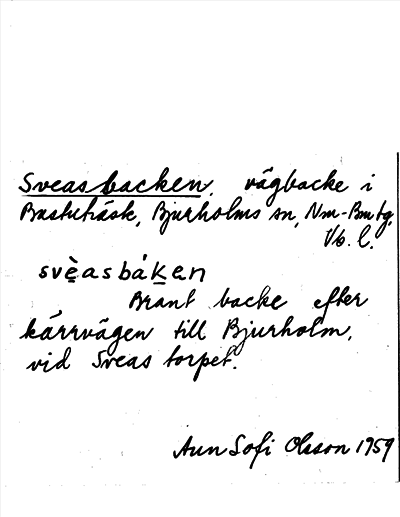 Sveasbacken, vägbacke i
Bastuträsk, Bjurholms sn, Nm-Bmtg.
Vb. l.
svèasbáken
Brant backe efter
kärrvägen till Bjurholm,
vid Sveas torpet.
Ann Sofi Olsson 1959